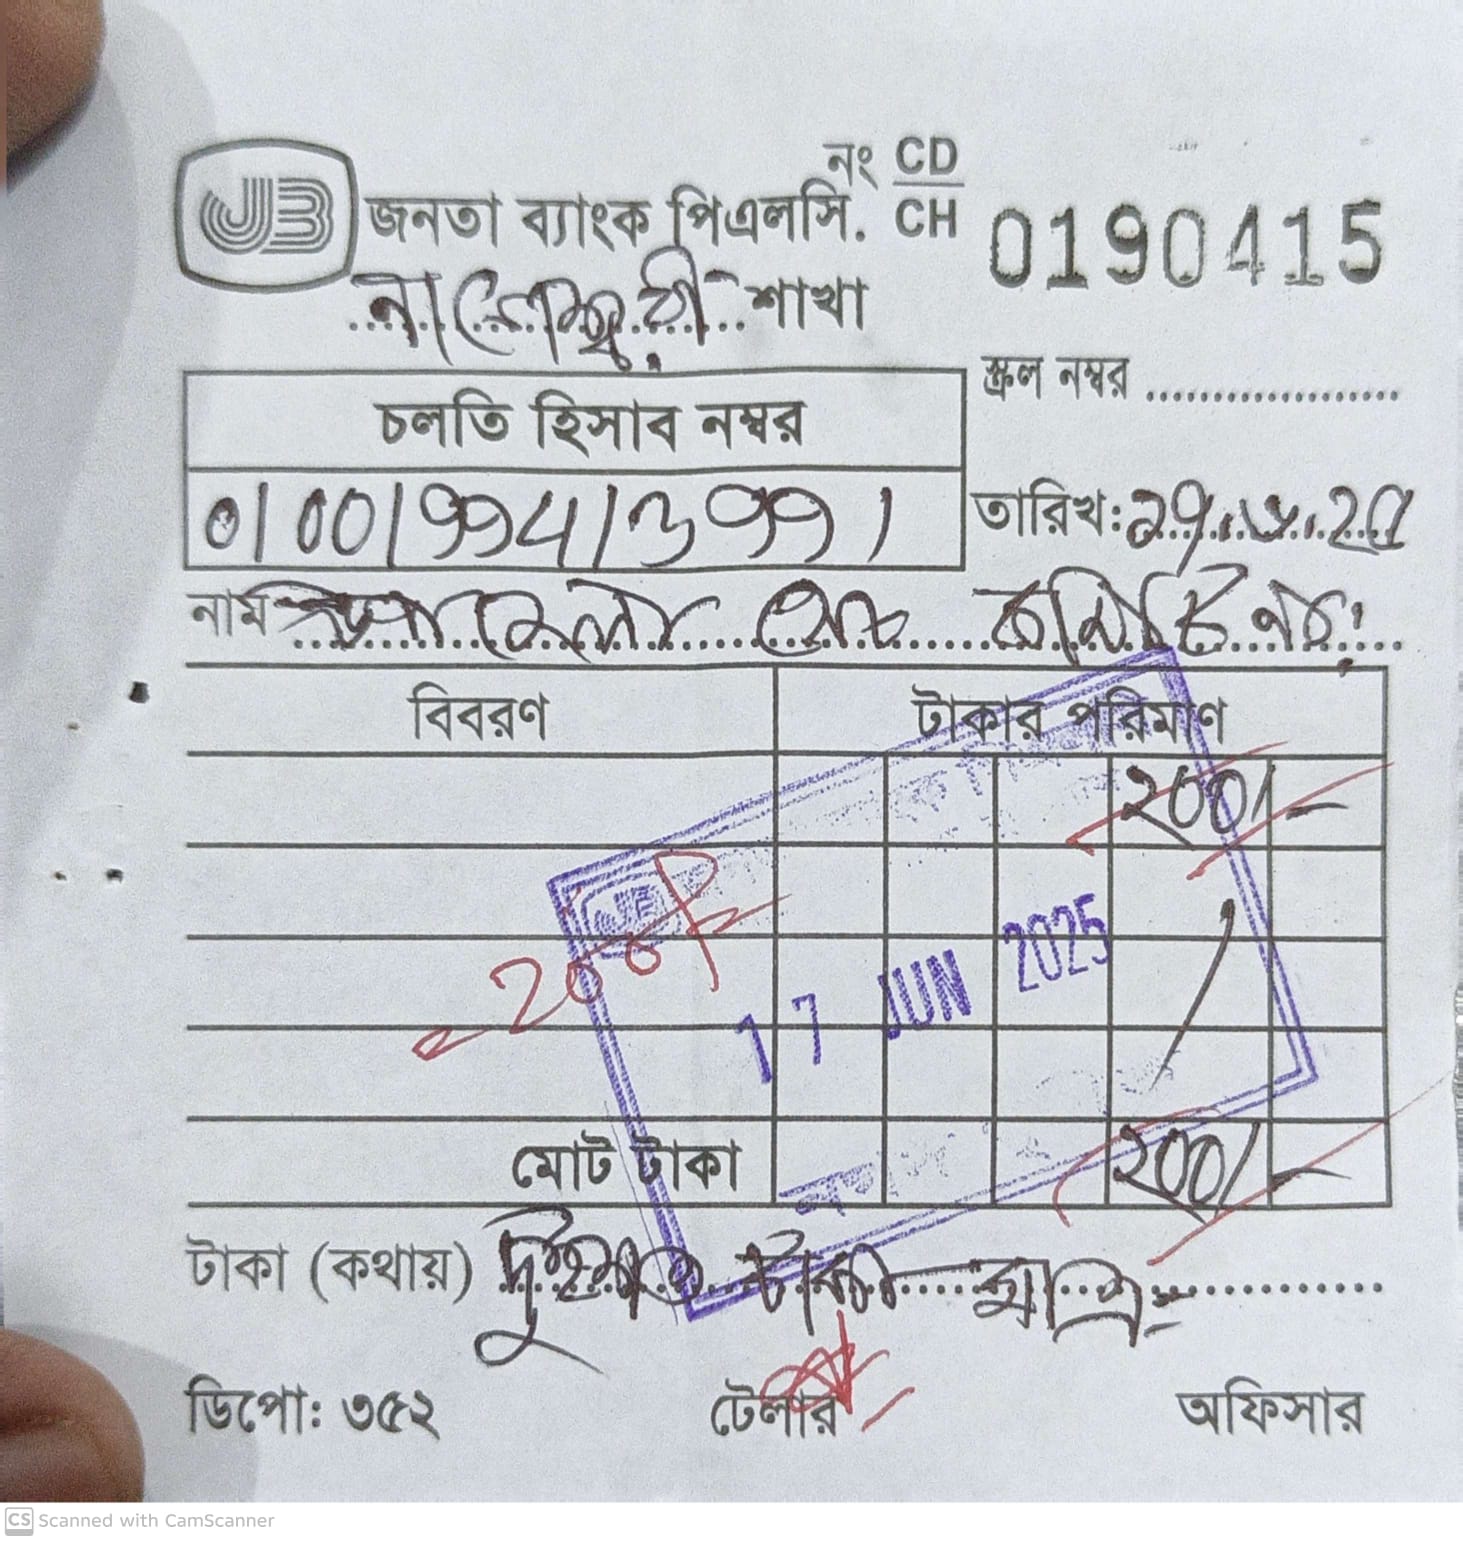 নং CD
CH
0190415
JB
জনতা ব্যাংক পিএলসি.
নাগেশ্বরী শাখা
স্ক্রল নম্বর
চলতি হিসাব নম্বর
তারিখ:
নাম
বিবরণ
টাকার পরিমাণ
200/-
200/-
17 JUN 2025
মোট টাকা
200/-
টাকা (কথায়) দুইশত টাকা মাত্র
ডিপো: ৩৫২
টেলার
অফিসার
CS Scanned with CamScanner